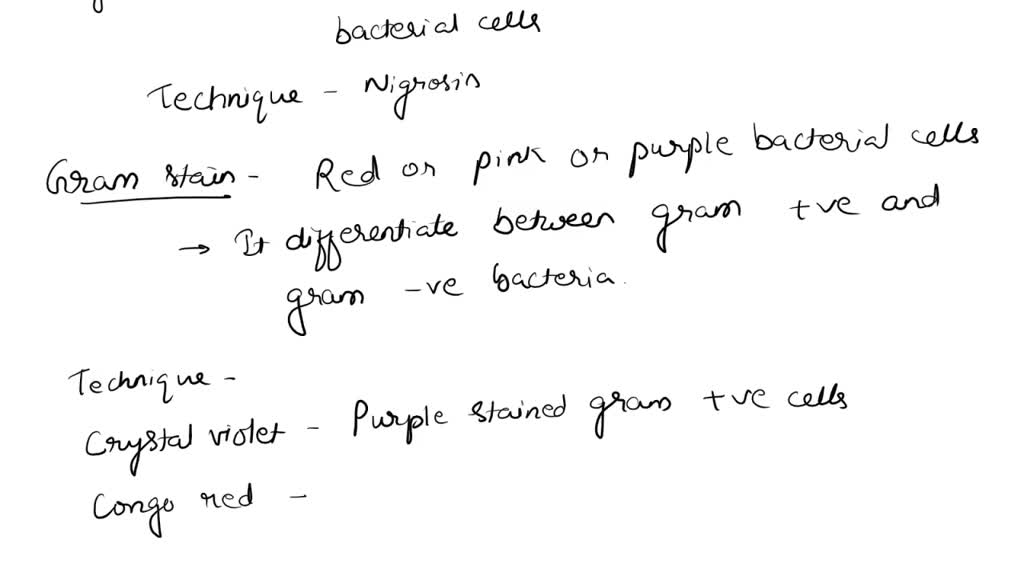 bacterial cells
Technique - Nigrosin
Gram stain - Red or pink or purple bacterial cells
→ It differentiate between gram +ve and
gram -ve bacteria.
Technique -
Crystal violet - Purple stained gram +ve cells
Congo red -